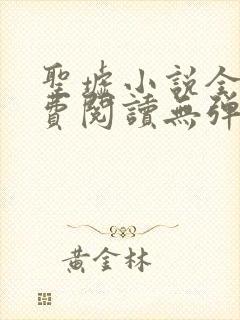 聖墟小説全
費閱讀無彈
黃金林